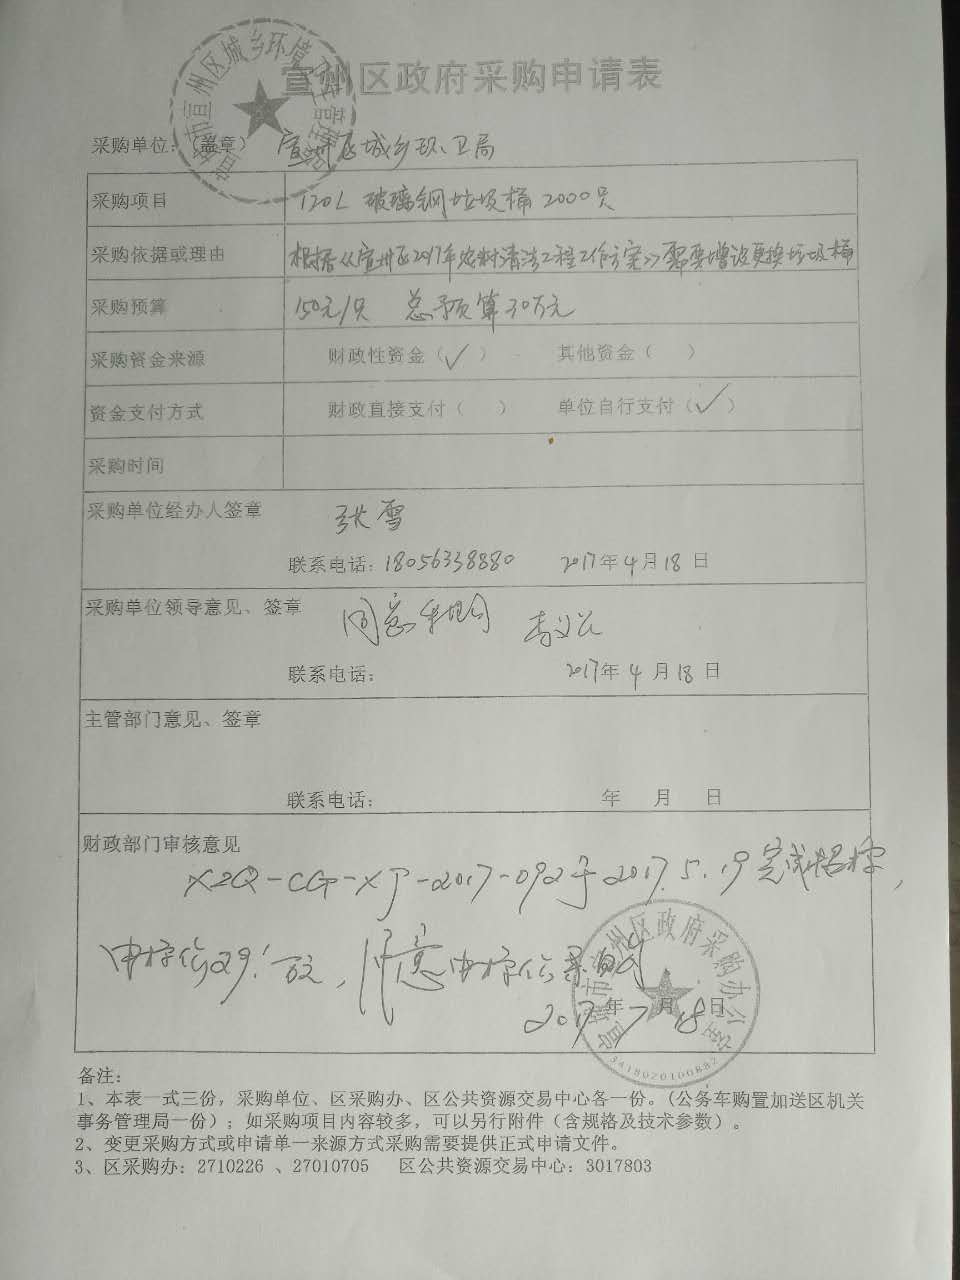 宣州区政府采购申请表
采购单位：（盖章） 宣州区城乡环卫局
采购项目 120L 玻璃钢垃圾桶 2000只
采购依据或理由 根据《宣州区2017年农村清洁工程工作方案》需要增设更换垃圾桶
采购预算 150元/只 总预算30万元
采购资金来源 财政性资金（✓） 其他资金（ ）
资金支付方式 财政直接支付（ ） 单位自行支付（✓）
采购时间
采购单位经办人签章 张雪
联系电话：18056338880 2017年4月18日
采购单位领导意见、签章 同意
联系电话： 2017年4月18日
主管部门意见、签章
联系电话： 年 月 日
财政部门审核意见
XZQ-CG-XJ-2017-092于2017.5.19完成招标，
中标价29.1万元，同意中标价采购
2017年7月18日
宣城市宣州区政府采购办公室
3418020100882
备注：
1、本表一式三份，采购单位、区采购办、区公共资源交易中心各一份。（公务车购置加送区机关
事务管理局一份）；如采购项目内容较多，可以另行附件（含规格及技术参数）。
2、变更采购方式或申请单一来源方式采购需要提供正式申请文件。
3、区采购办：2710226 、27010705 区公共资源交易中心：3017803